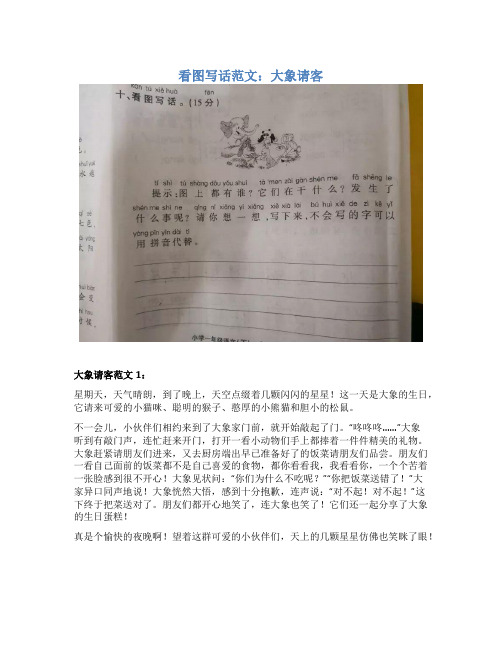 看图写话范文：大象请客
kàn tú xiě huà fēn
十、看图写话。(15分)
tí shì tú shàng dōu yǒu shuí tā men zài gàn shén me fā shēng le
提示：图上都有谁？它们在干什么？发生了
shén me shì ne qǐng nǐ xiǎng yì xiǎng xiě xià lái bú huì xiě de zì kě yǐ
什么事呢？请你想一想，写下来，不会写的字可以
yòng pīn yīn dài tì
用拼音代替。
小学一年级语文
大象请客范文1：
星期天，天气晴朗，到了晚上，天空点缀着几颗闪闪的星星！这一天是大象的生日，
它请来可爱的小猫咪、聪明的猴子、憨厚的小熊猫和胆小的松鼠。
不一会儿，小伙伴们相约来到了大象家门前，就开始敲起了门。“咚咚咚……”大象
听到有敲门声，连忙赶来开门，打开一看小动物们手上都捧着一件件精美的礼物。
大象赶紧请朋友们进来，又去厨房端出早已准备好了的饭菜请朋友们品尝。朋友们
一看自己面前的饭菜都不是自己喜爱的食物，都你看看我，我看看你，一个个苦着
一张脸感到很不开心！大象见状问：“你们为什么不吃呢？”“你把饭菜送错了！”大
家异口同声地说！大象恍然大悟，感到十分抱歉，连声说：“对不起！对不起！”这
下终于把菜送对了。朋友们都开心地笑了，连大象也笑了！它们还一起分享了大象
的生日蛋糕！
真是个愉快的夜晚啊！望着这群可爱的小伙伴们，天上的几颗星星仿佛也笑眯了眼！